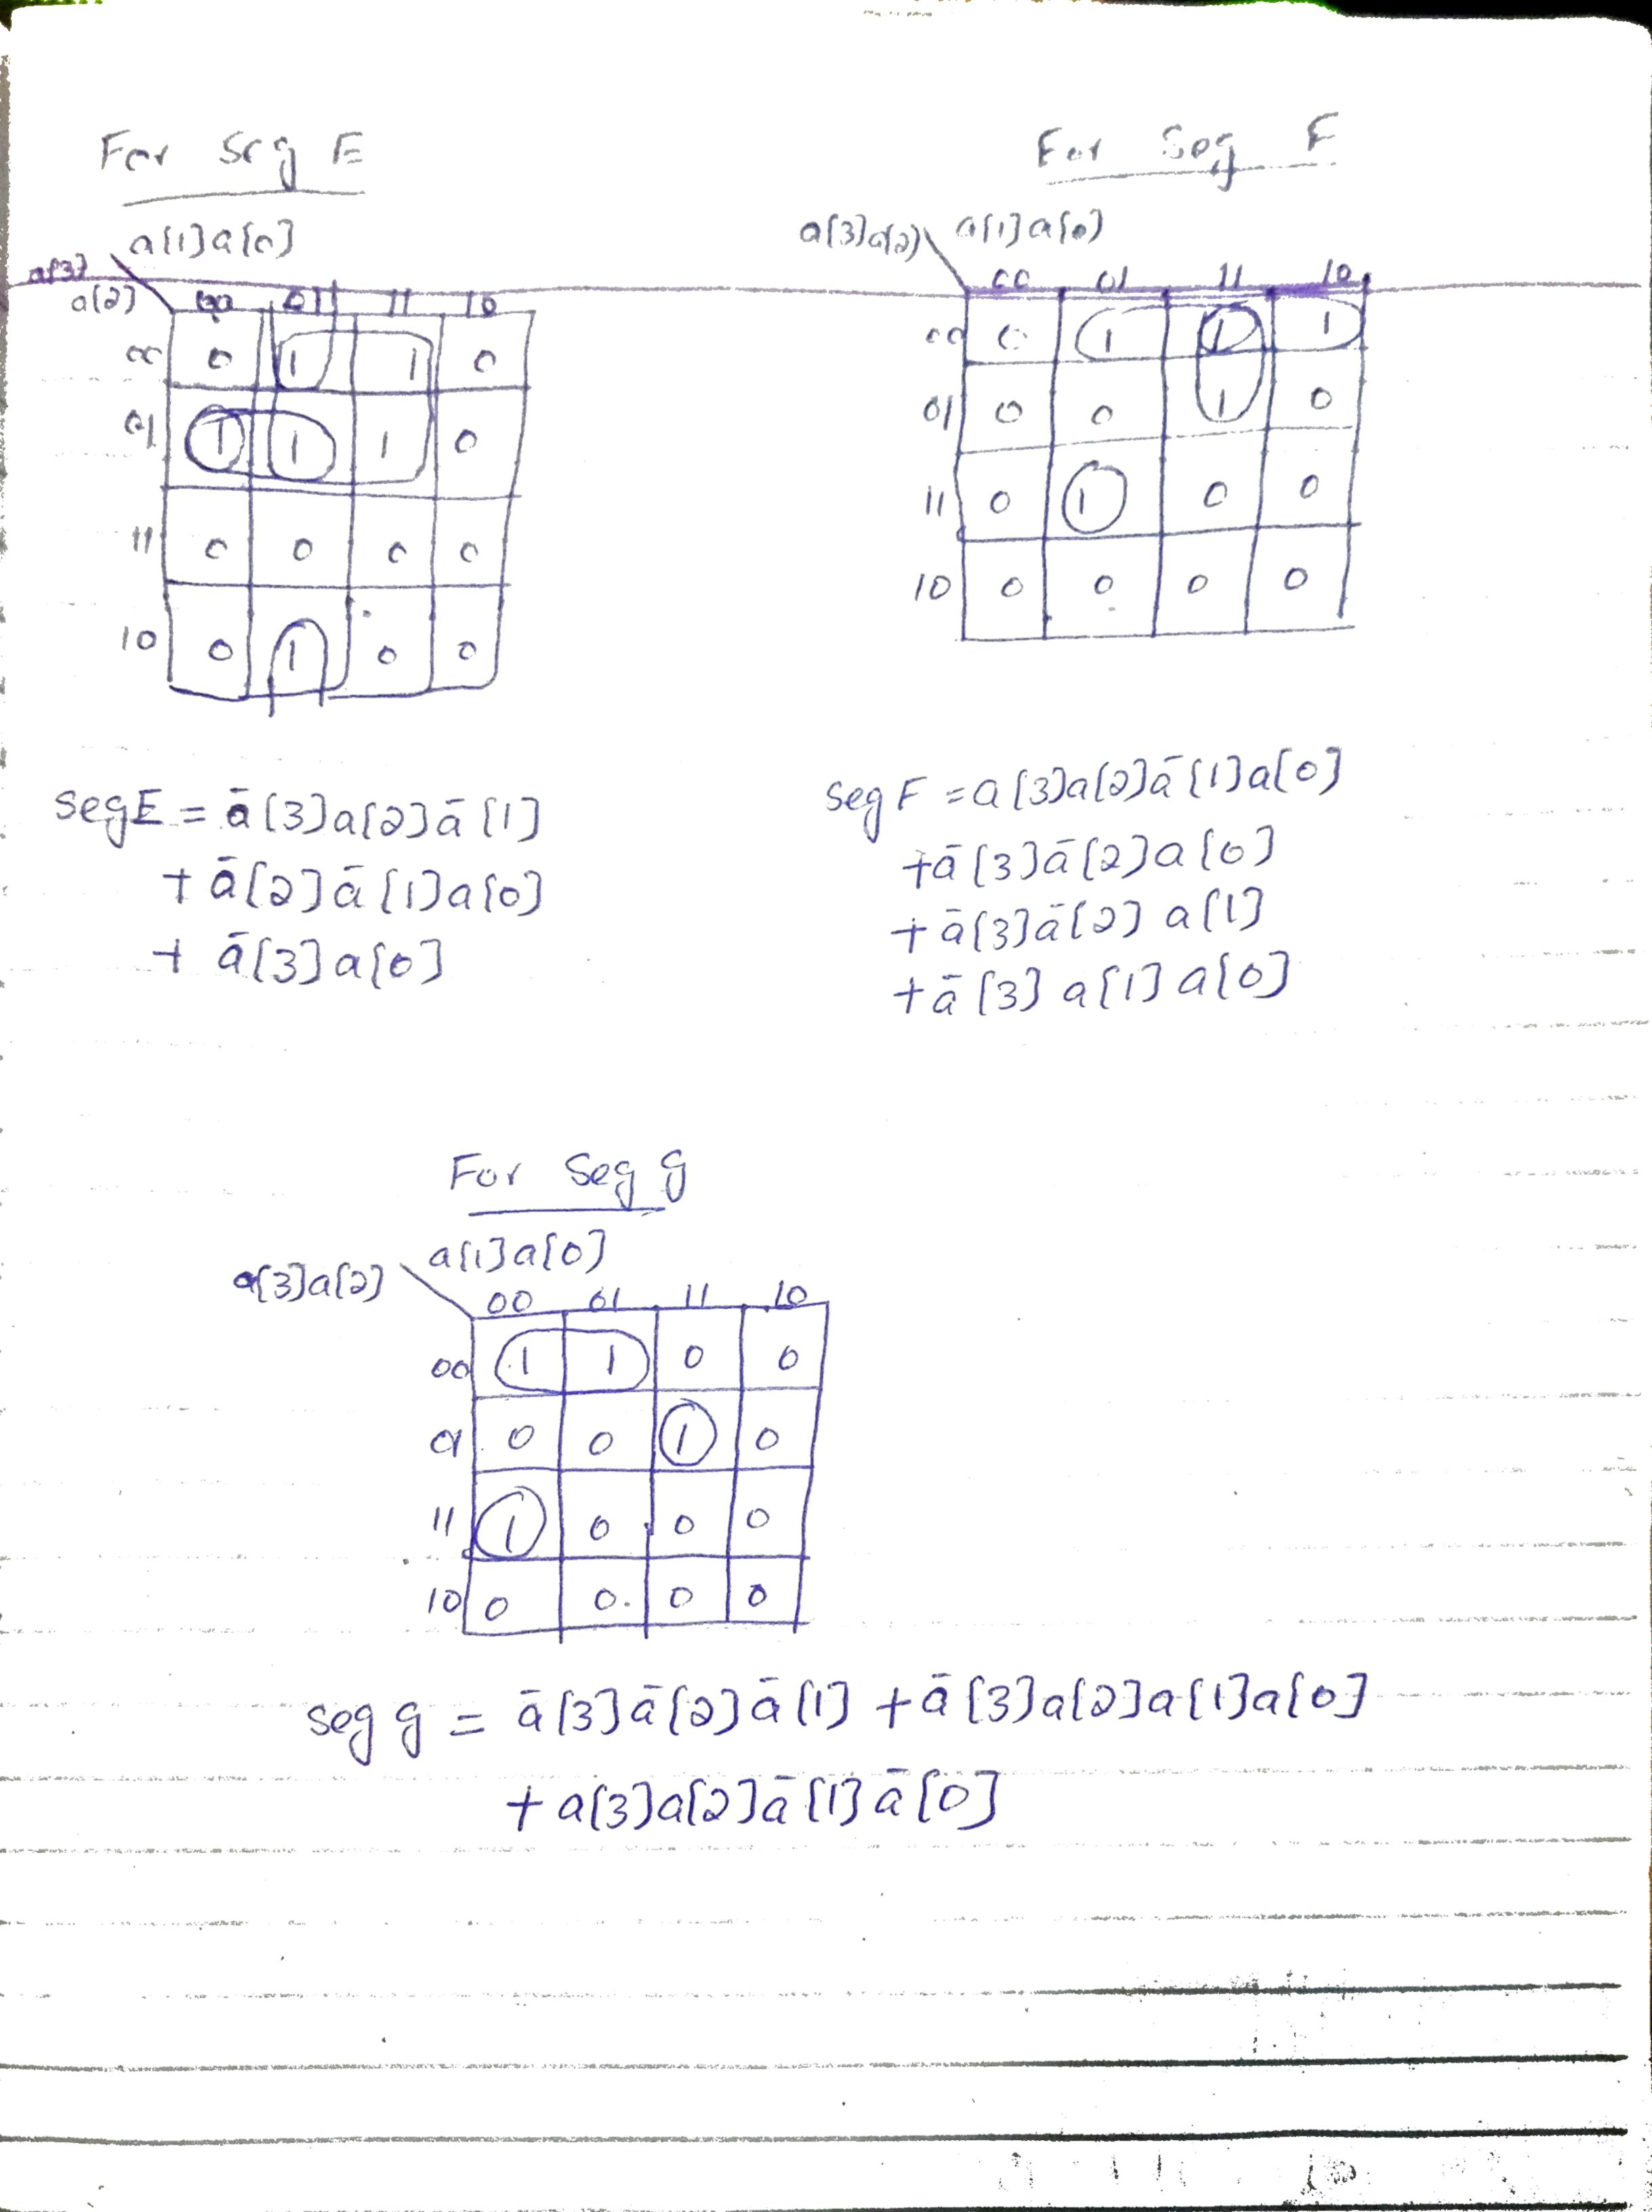 For Seg E
a[1]a[0]
a[3]
a[2] 00 01 11 10
00 0 1 1 0
01 1 1 1 0
11 0 0 0 0
10 0 1 0 0
seg E = ā[3]a[2]ā[1]
+ ā[2]ā[1]a[0]
+ ā[3]a[0]
For Seg F
a[3]a[2] a[1]a[0]
00 01 11 10
00 0 1 1 1
01 0 0 1 0
11 0 1 0 0
10 0 0 0 0
seg F = a[3]a[2]ā[1]a[0]
+ā[3]ā[2]a[0]
+ā[3]ā[2] a[1]
+ā[3] a[1] a[0]
For Seg g
a[3]a[2] a[1]a[0]
00 01 11 10
00 1 1 0 0
01 0 0 1 0
11 1 0 0 0
10 0 0 0 0
seg g = ā[3]ā[2]ā[1] +ā[3]a[2]a[1]a[0]
+ a[3]a[2]ā[1]ā[0]